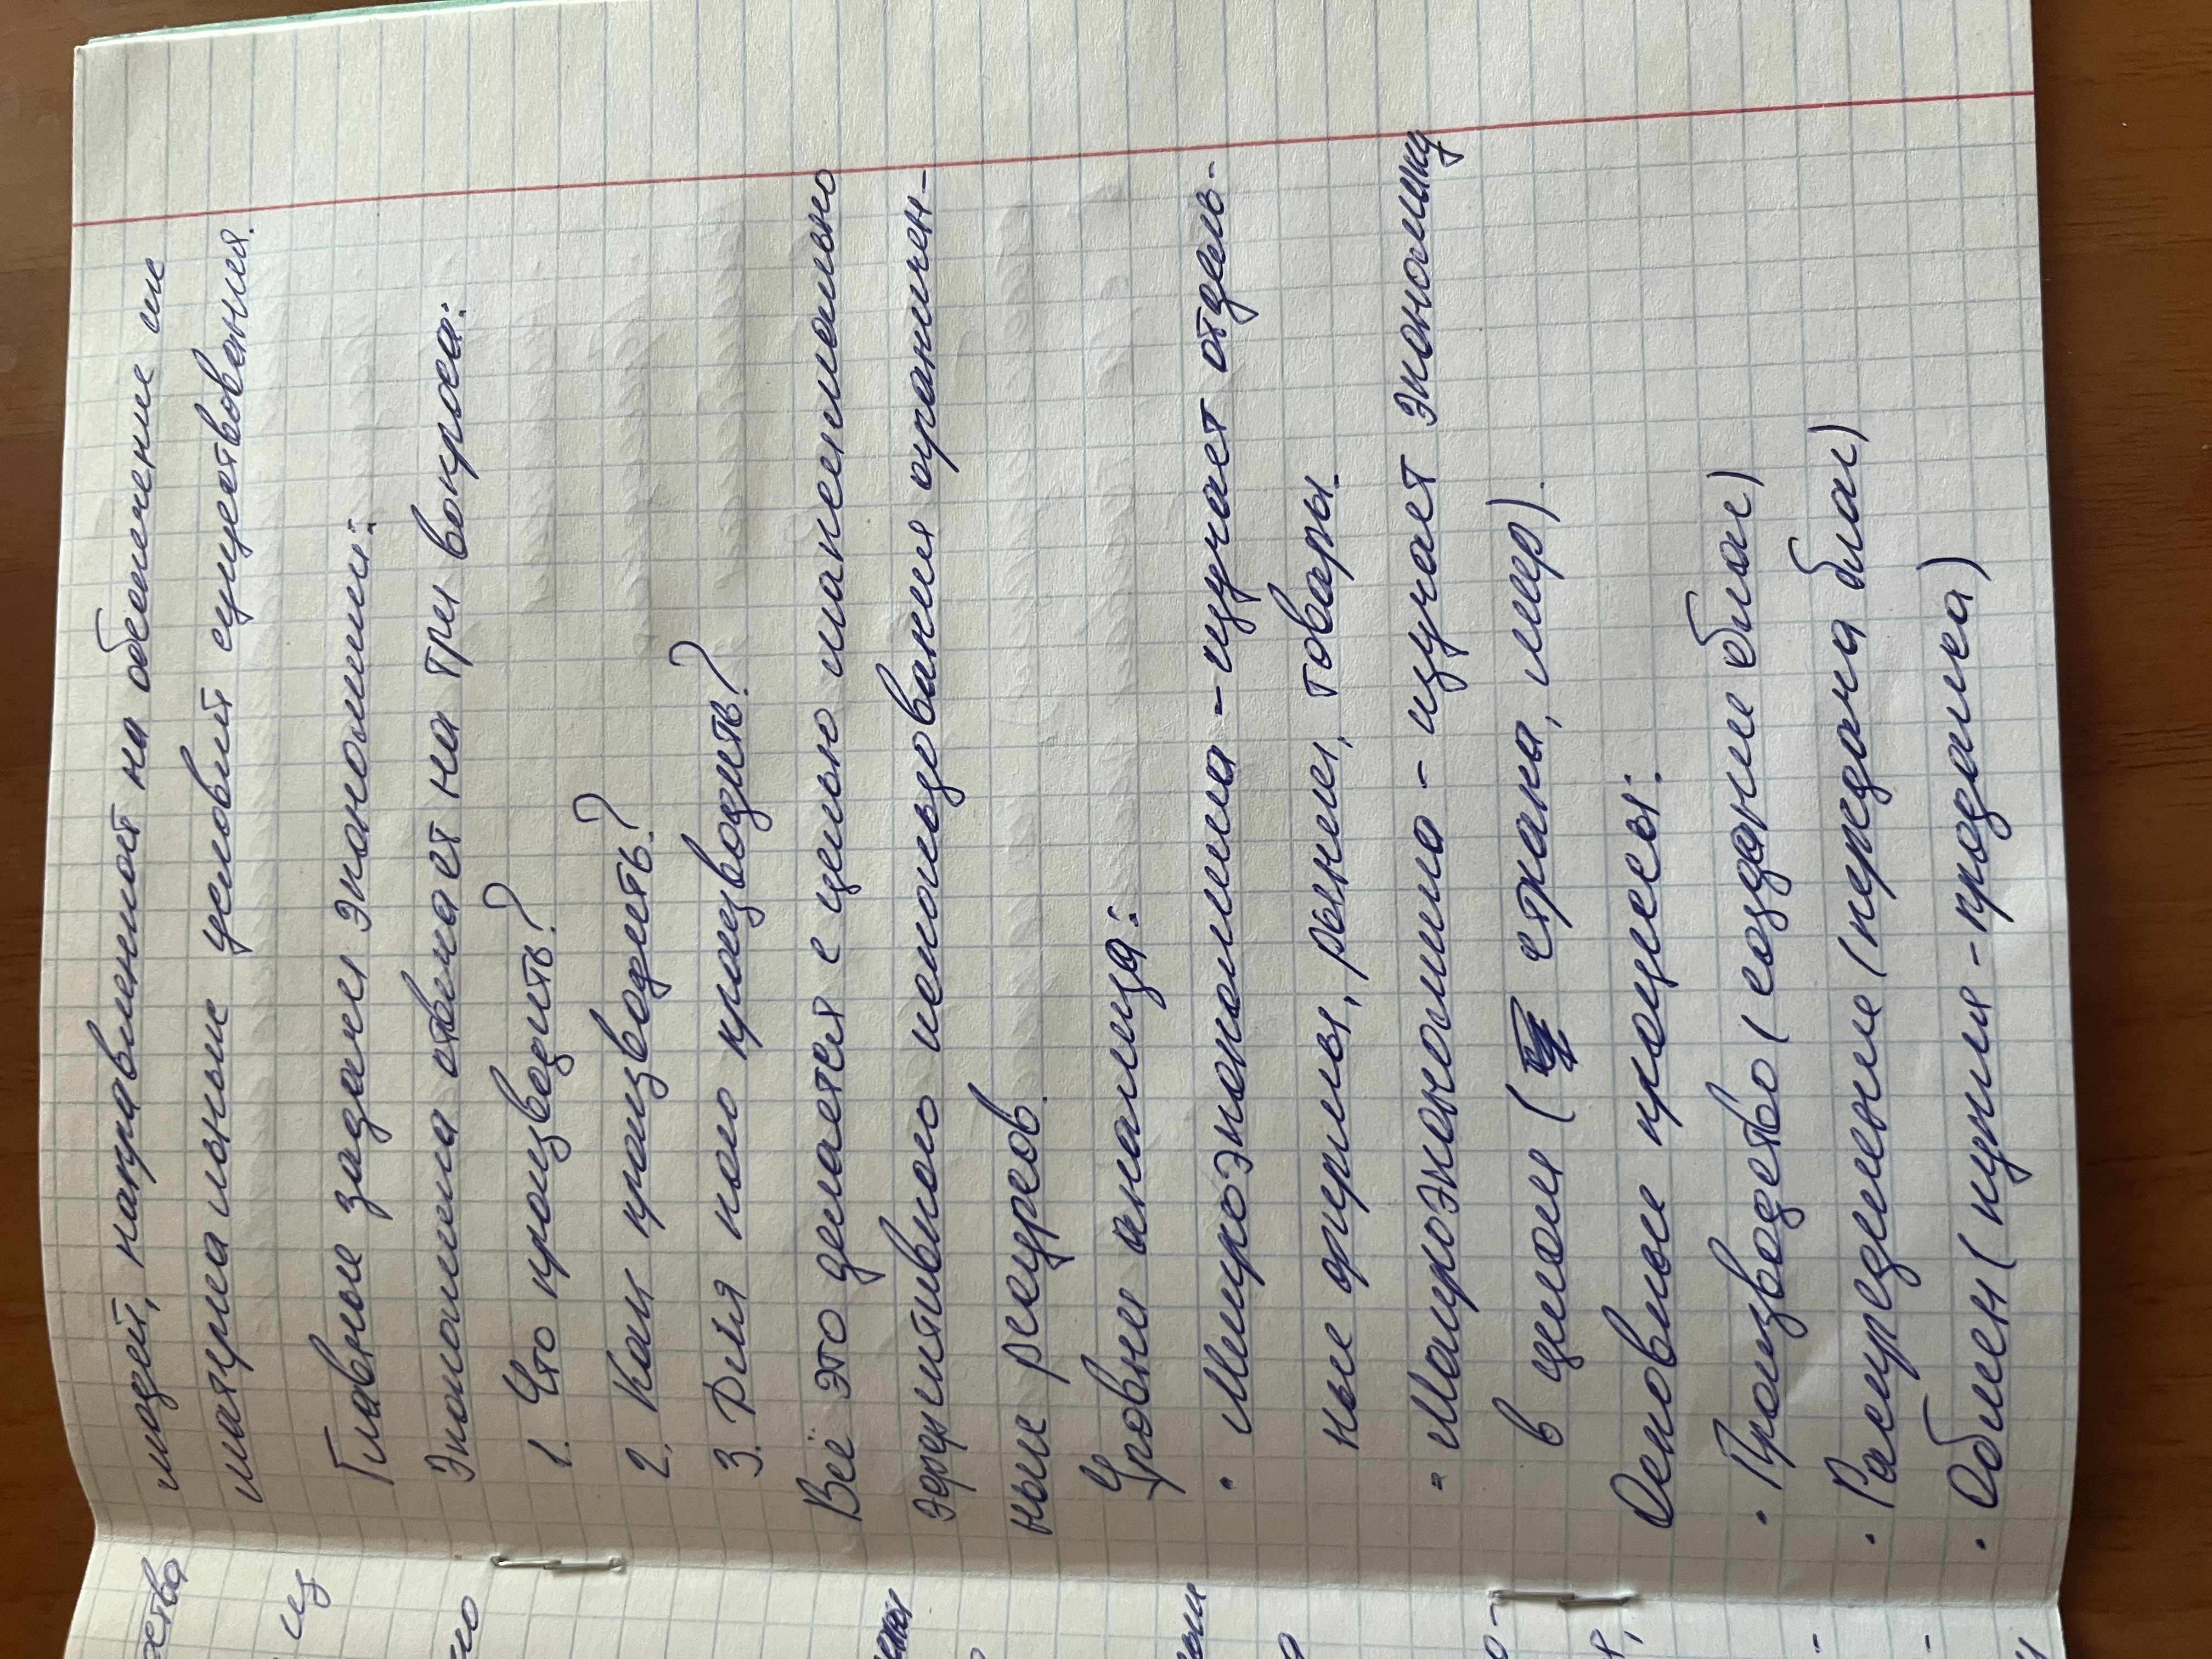 людей, направленност на обеспечение их
материальных условий существования.
Главные задачи экономики:
Экономика отвечает на три вопроса:
1. Что производить?
2. Как производить?
3. Для кого производить?
Всё это делается с целью максимально
эффективного использования ограничен-
ных ресурсов.
Уровни анализа:
• Микроэкономика - изучает отдель-
ные фирмы, рынки, товары.
• Макроэкономика - изучает экономику
в целом ( страна, мир).
Основные процессы:
• Производство (создание благ)
• Распределение (передача благ)
• Обмен (купля - продажа)